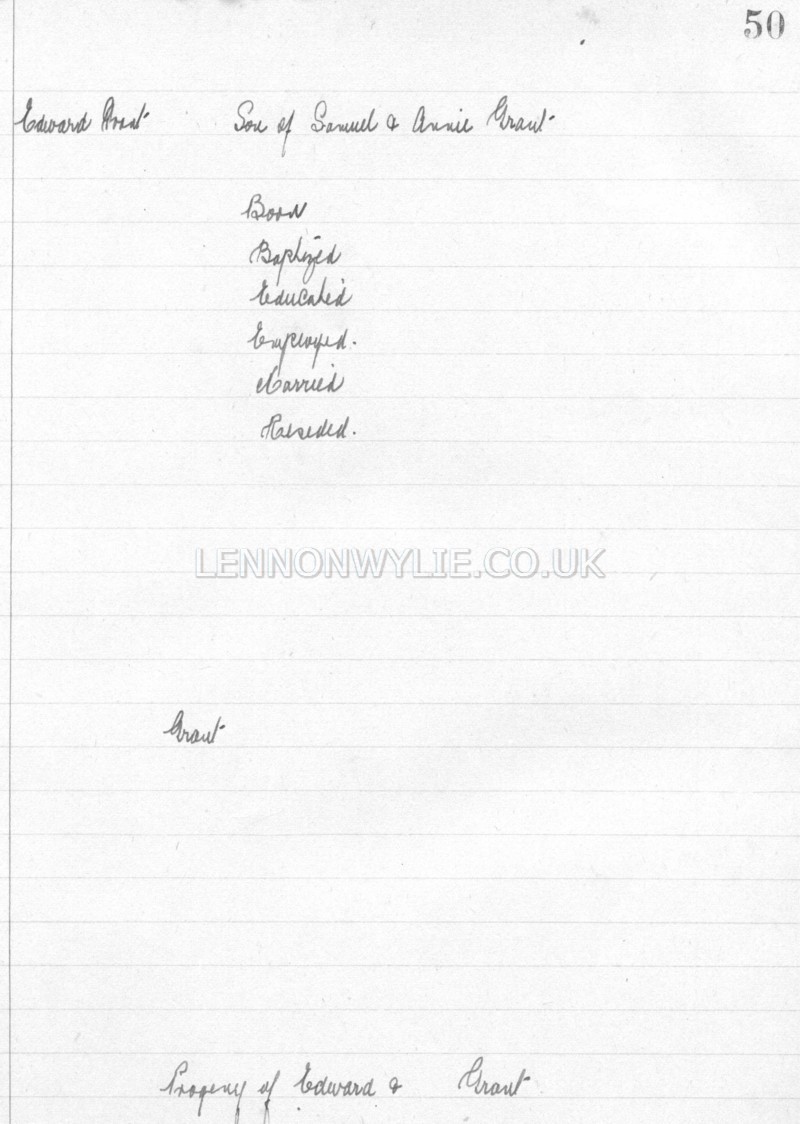 50
Edward Grant Son of Samuel & Annie Grant
Born
Baptized
Educated
Employed.
Married
Resided.
LENNONWYLIE.CO.UK
Grant
Progeny of Edward & Grant